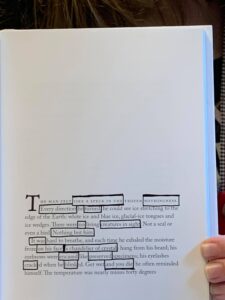 THE MAN FELT LIKE A SPECK IN THE FROZEN NOTHINGNESS.
Every direction he turned, he could see ice stretching to the
edge of the Earth: white ice and blue ice, glacial-ice tongues and
ice wedges. There were no living creatures in sight. Not a seal or
even a bird. Nothing but him.
It was hard to breathe, and each time he exhaled the moisture
froze on his face: a chandelier of crystals hung from his beard; his
eyebrows were encased like preserved specimens; his eyelashes
cracked when he blinked. Get wet and you die, he often reminded
himself. The temperature was nearly minus forty degrees